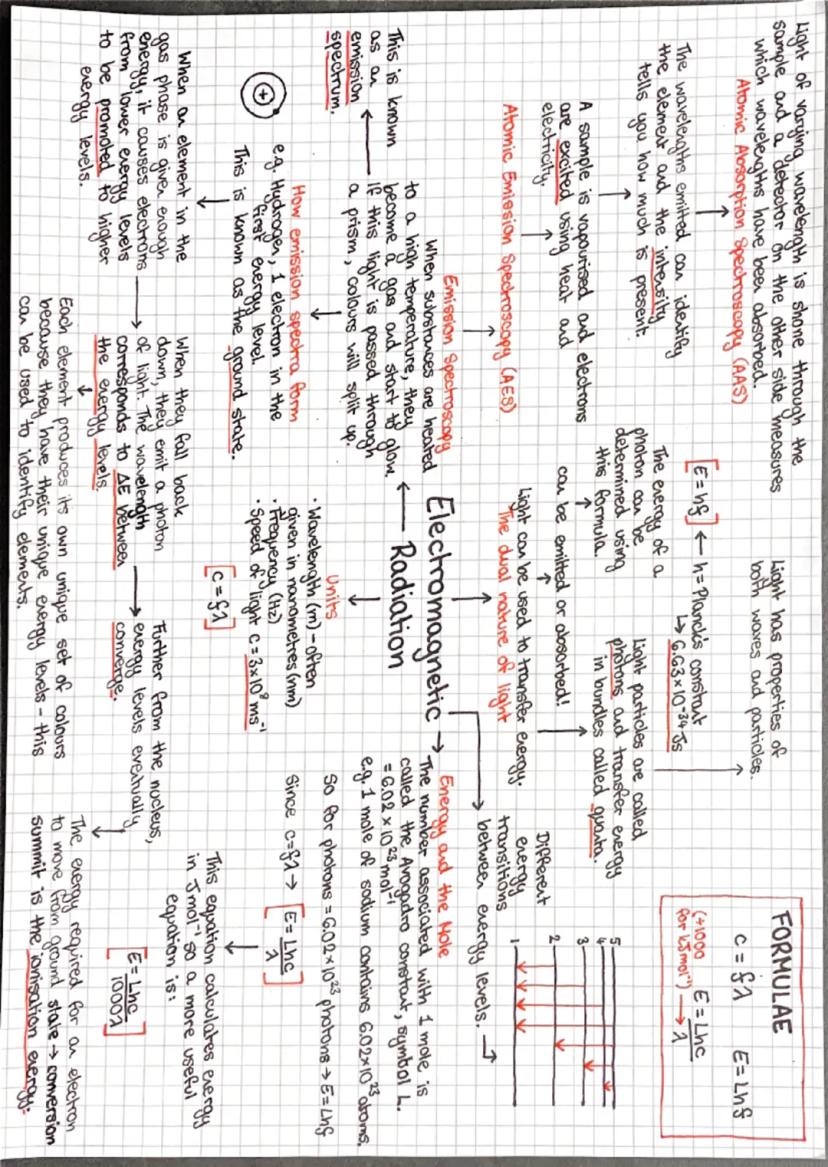 Light of varying wavelength is shone through the
sample and a detector on the other side measures
which wavelengths have been absorbed.
Atomic Absorption Spectroscopy (AAS)
The wavelengths emitted can identify
the element and the intensity
tells you how much is present.
A sample is vapourised and electrons
are excited using heat and
electricity.
Atomic Emission Spectroscopy (AES)
Emission Spectroscopy
When substances are heated
to a high temperature, they
become a gas and start to glow.
if this light is passed through
a prism, colours will split up.
This is known
as an
emission
spectrum.
How emission spectra form
e.g. Hydrogen, 1 electron in the
first energy level.
This is known as the ground state.
+
When an element in the
gas phase is given enough
energy, it causes electrons
from lower energy levels
to be promoted to higher
energy levels.
When they fall back
down, they emit a photon
of light. The wavelength
corresponds to ΔE between
the energy levels.
Each element produces its own unique set of colours
because they have their unique energy levels - this
can be used to identify elements.
Further from the nucleus,
energy levels eventually
converge.
The energy required for an electron
to move from ground state → conversion
summit is the ionisation energy.
Electromagnetic
Radiation
Units
• Wavelength (m) - often
given in nanometres (nm)
• Frequency (Hz)
• Speed of light c = 3×10⁸ ms⁻¹
[c = fλ]
The dual nature of light
Light can be used to transfer energy.
can be emitted or absorbed!
The energy of a
photon can be
determined using
this formula
[E = hf] ← h = Planck's constant
↳ 6.63×10⁻³⁴ Js
Light particles are called
photons and transfer energy
in bundles called quanta.
Light has properties of
both waves and particles.
FORMULAE
c = fλ E = Lhf
(÷1000 E = Lhc
for kJmol⁻¹) → λ
Different
energy
transitions
between energy levels.
5
4
3
2
1
Energy and the Mole
The number associated with 1 mole is
called the Avogadro constant, symbol L.
= 6.02 × 10²³ mol⁻¹
e.g. 1 mole of sodium contains 6.02×10²³ atoms.
So for photons = 6.02×10²³ photons → E = Lhf
Since c = fλ → [E = Lhc
λ]
This equation calculates energy
in Jmol⁻¹ so a more useful
equation is:
[E = Lhc
1000λ]